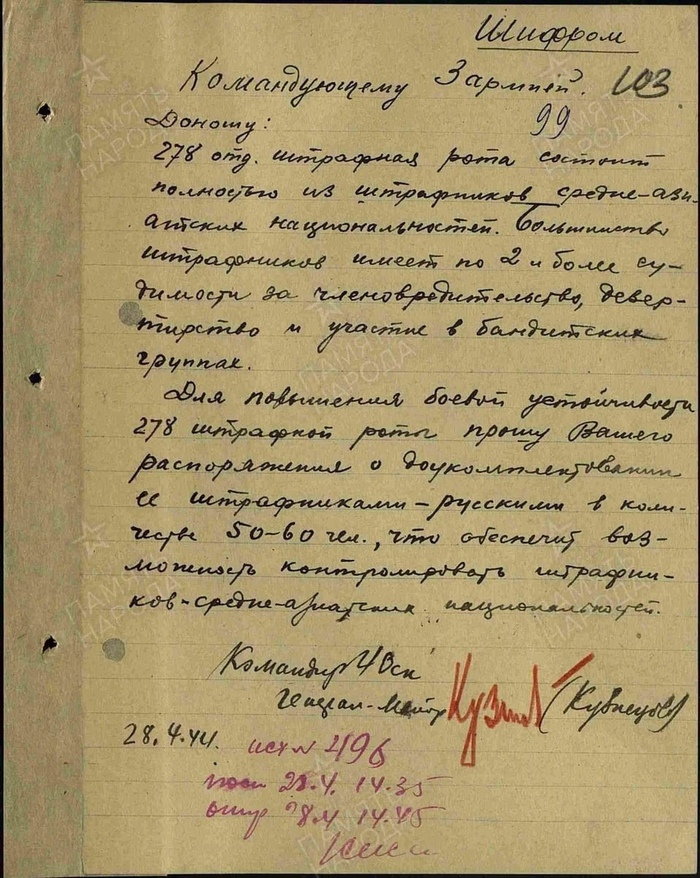 Шифром
Командующему 3 армией. 103
Доношу: 99
278 отд. штрафная рота состоит
полностью из штрафников средне-ази-
атских национальностей. Большинство
штрафников имеет по 2 и более су-
димости за членовредительство, дезер-
тирство и участие в бандитских
группах.
Для повышения боевой устойчивости
278 штрафной роты прошу Вашего
распоряжения о доукомплектовании
ее штрафниками-русскими в коли-
честве 50-60 чел., что обеспечит воз-
можность контролировать штрафни-
ков-средне-азиатских национальностей.
Командир 40ск
Генерал-Майор (Кузнецов)
28.4.44. исх № 496
28.4. 14.35
28.4 14.45
ПАМЯТЬ НАРОДА